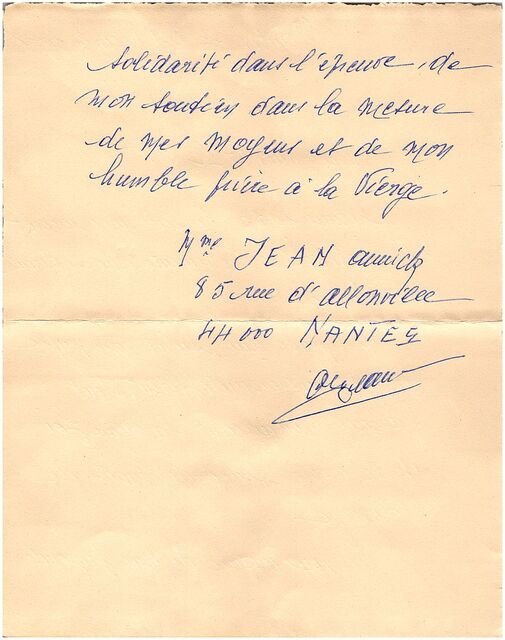 solidarité dans l'épreuve, de
mon soutien dans la mesure
de mes moyens et de mon
humble prière à la Vierge.
Mme JEAN annick
85 rue d'allonville
44000 NANTES